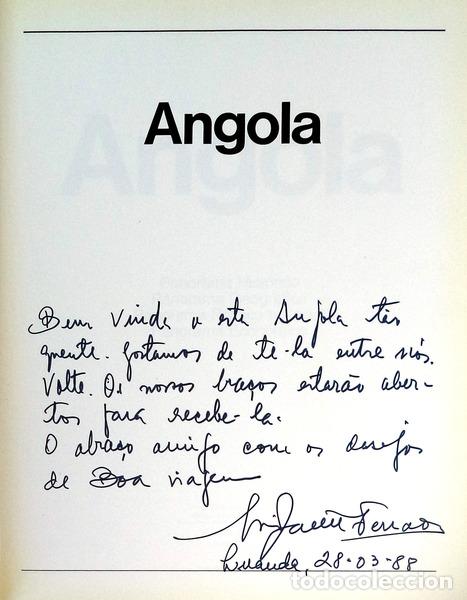 Angola
Bem vinda a esta Angola tão
quente. gostamos de te-la entre nós.
Volte. Os nossos braços estarão aber-
tos para recebe-la.
O abraço amigo com os desejos
de Boa viagem
Ferrão
Luanda, 28-03-88
todocoleccion